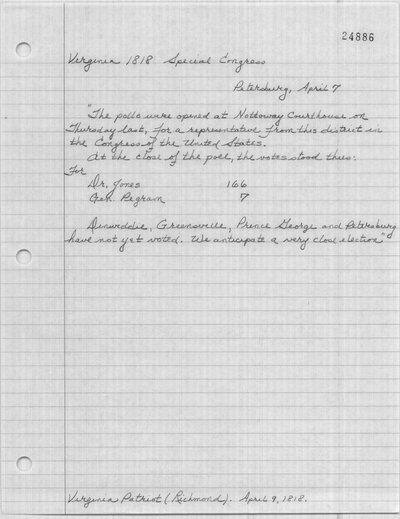 24886
Virginia 1818 Special Congress
Petersburg, April 7
"The polls were opened at Nottoway Courthouse on
Thursday last, for a representative from this district in
the Congress of the United States.
At the close of the poll, the votes stood thus:
For
Dr. Jones 166
Gen. Pegram 7
Dinwiddie, Greensville, Prince George and Petersburg
have not yet voted. We anticipate a very close election"
Virginia Patriot (Richmond). April 9, 1818.